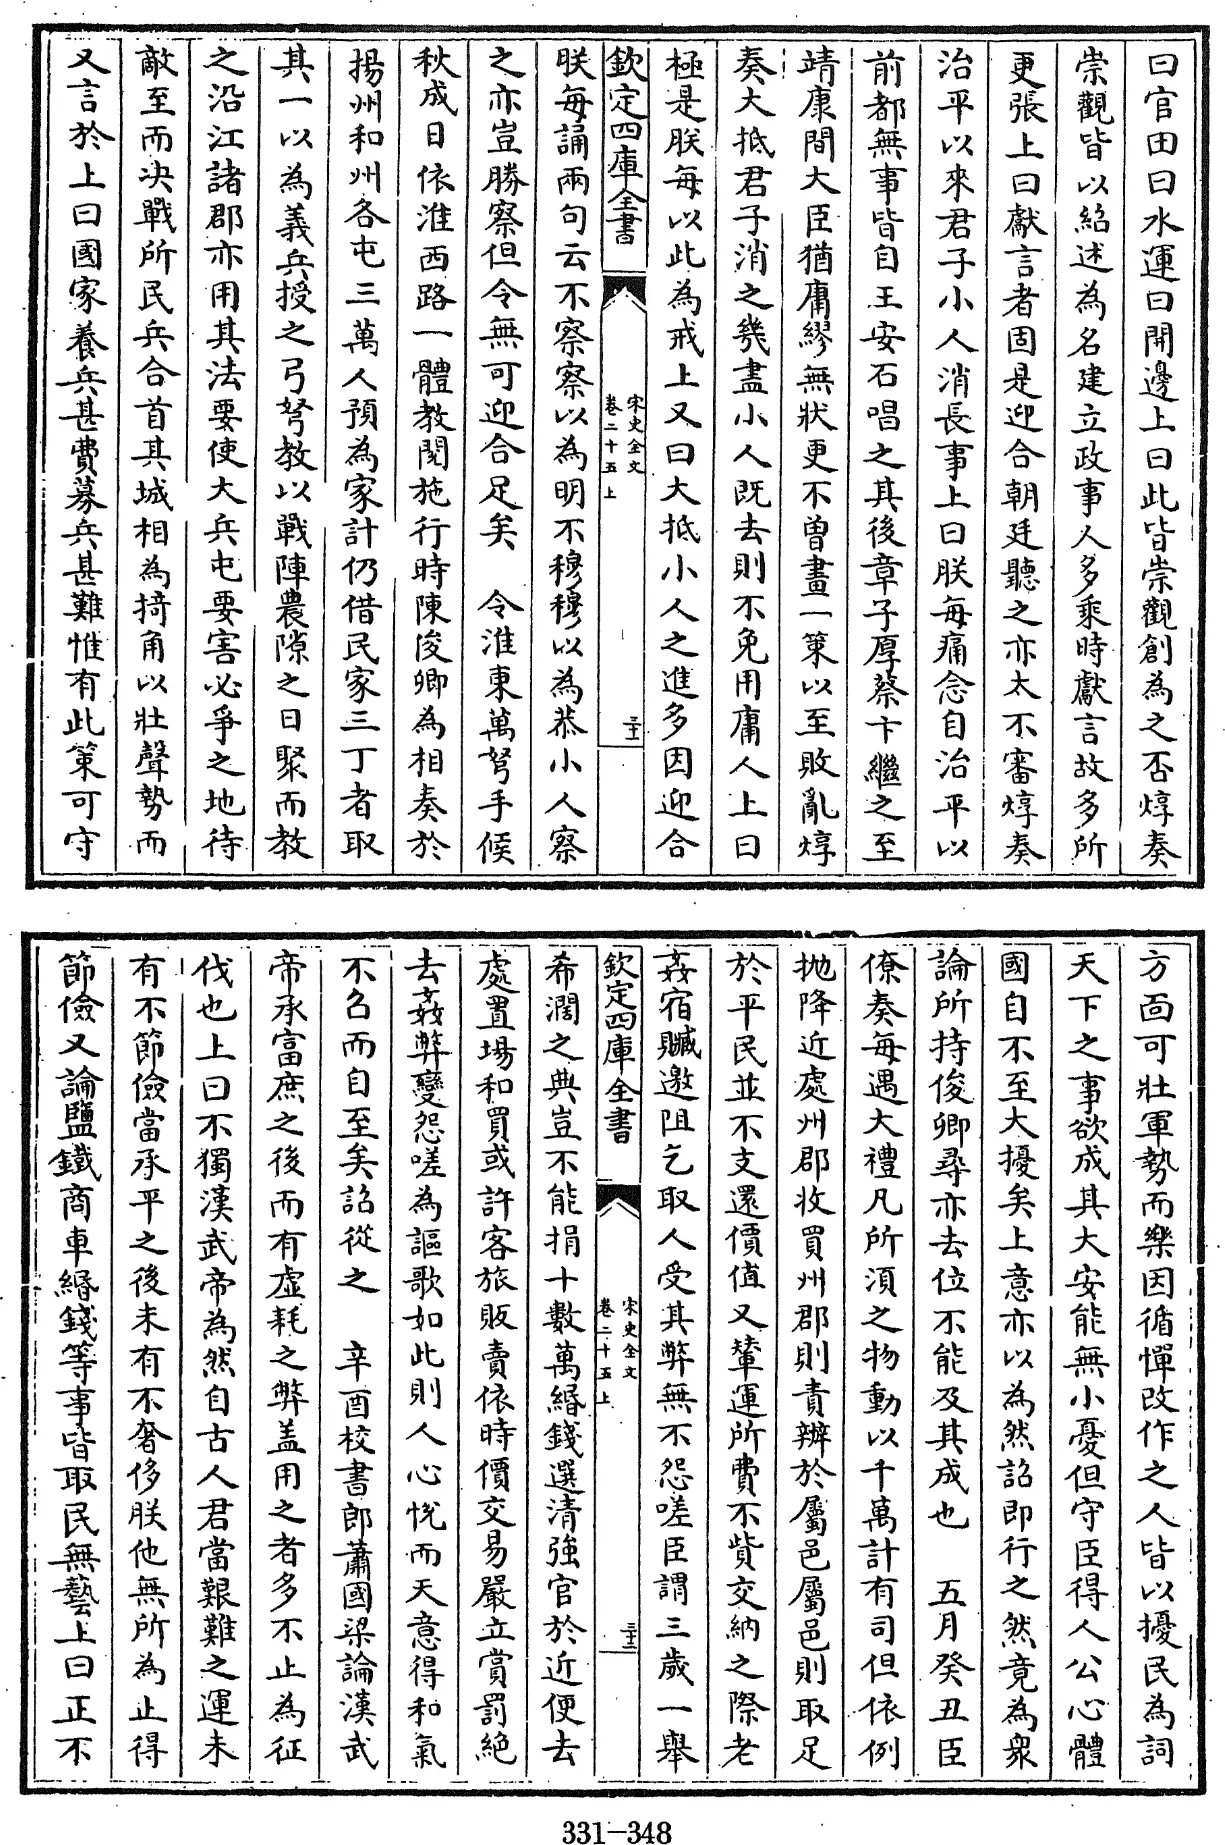 曰官田曰水運曰開邊上曰此皆崇觀創為之否焞奏
崇觀皆以紹述為名建立政事人多乘時獻言故多所
更張上曰獻言者固是迎合朝廷聽之亦太不審焞奏
治平以來君子小人消長事上曰朕每痛念自治平以
前都無事皆自王安石唱之其後章子厚蔡卞繼之至
靖康間大臣猶庸繆無狀更不曾畫一策以至敗亂焞
奏大抵君子消之幾盡小人既去則不免用庸人上曰
極是朕每以此為戒上又曰大抵小人之進多因迎合
欽定四庫全書
宋史全文
卷二十五上
三十一
朕每誦兩句云不察察以為明不穆穆以為恭小人察
之亦豈勝察但令無可迎合足矣　令淮東萬弩手候
秋成日依淮西路一體教閱施行時陳俊卿為相奏於
揚州和州各屯三萬人預為家計仍借民家三丁者取
其一以為義兵授之弓弩教以戰陣農隙之日聚而教
之沿江諸郡亦用其法要使大兵屯要害必爭之地待
敵至而決戰所民兵合首其城相為掎角以壯聲勢而
又言於上曰國家養兵甚費募兵甚難惟有此策可守
方面可壯軍勢而樂因循憚改作之人皆以擾民為詞
天下之事欲成其大安能無小憂但守臣得人公心體
國自不至大擾矣上意亦以為然詔即行之然竟為衆
論所持俊卿尋亦去位不能及其成也　五月癸丑臣
僚奏每遇大禮凡所湏之物動以千萬計有司但依例
拋降近處州郡收買州郡則責辦於屬邑屬邑則取足
於平民並不支還價值又輦運所費不貲交納之際老
姦宿贓邀阻乞取人受其弊無不怨嗟臣謂三歲一舉
欽定四庫全書
宋史全文
卷二十五上
三十二
希濶之典豈不能捐十數萬緡錢選清強官於近便去
處置場和買或許客旅販賣依時價交易嚴立賞罰絶
去姦弊變怨嗟為謳歌如此則人心恱而天意得和氣
不召而自至矣詔從之　辛酉校書郎蕭國梁論漢武
帝承富庶之後而有虛耗之弊盖用之者多不止為征
伐也上曰不獨漢武帝為然自古人君當艱難之運未
有不節儉當承平之後未有不奢侈朕他無所為止得
節儉又論鹽鐵商車緡錢等事皆取民無藝上曰正不
331-348